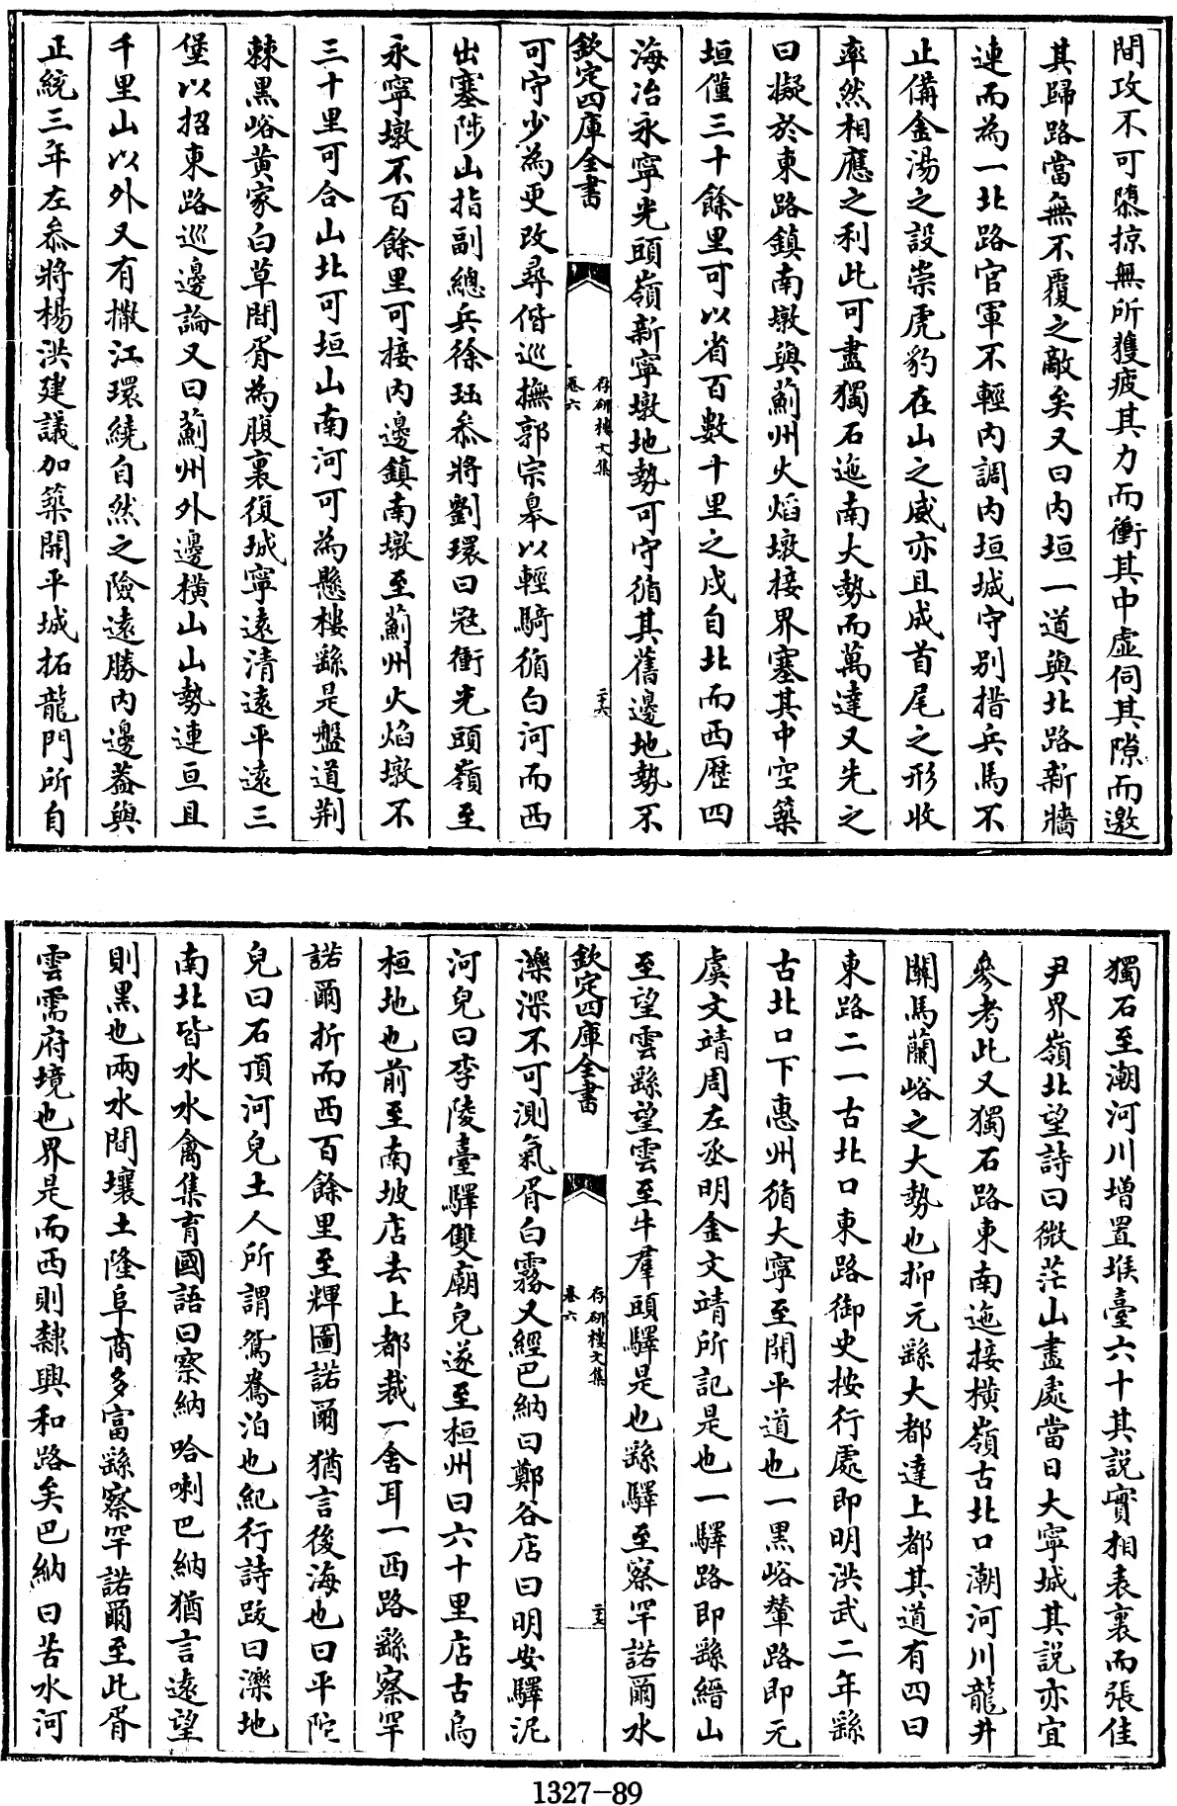 間攻不可隳掠無所獲疲其力而衝其中虛伺其隙而邀
其歸路當無不覆之敵矣又曰内垣一道與北路新牆
連而為一北路官軍不輕内調内垣城守别措兵馬不
止備金湯之設崇虎豹在山之威亦且成首尾之形收
率然相應之利此可盡獨石迤南大勢而萬達又先之
曰擬於東路鎮南墩與薊州火焰墩接界塞其中空築
垣僅三十餘里可以省百數十里之戍自北而西歷四
海冶永寧光頭嶺新寧墩地勢可守循其舊邊地勢不
欽定四庫全書
存研樓文集
卷六
二十六
可守少為更改尋偕巡撫郭宗臯以輕騎循白河而西
出塞陟山指副總兵徐珏叅將劉環曰冦衝光頭嶺至
永寧墩不百餘里可接内邊鎮南墩至薊州火焰墩不
三十里可合山北可垣山南河可為懸樓繇是盤道荆
棘黑峪黄家白草間胥為腹裏復城寧遠清遠平遠三
堡以招東路巡邊論又曰薊州外邊横山山勢連亘且
千里山以外又有撒江環繞自然之險遠勝内邊葢與
正統三年左叅將楊洪建議加築開平城拓龍門所自
獨石至潮河川增置堠臺六十其說實相表裏而張佳
尹界嶺北望詩曰微茫山盡處當日大寧城其説亦宜
參考此又獨石路東南迤接横嶺古北口潮河川龍井
關馬蘭峪之大勢也抑元繇大都達上都其道有四曰
東路二一古北口東路御史按行處即明洪武二年繇
古北口下惠州循大寧至開平道也一黑峪輦路即元
虞文靖周左丞明金文靖所記是也一驛路即繇縉山
至望雲繇望雲至牛羣頭驛是也繇驛至察罕諾爾水
欽定四庫全書
存研樓文集
卷六
二十七
濼深不可測氣胥白霧又經巴納曰鄭谷店曰明安驛泥
河兒曰李陵臺驛雙廟兒遂至桓州曰六十里店古烏
桓地也前至南坡店去上都裁一舍耳一西路繇察罕
諾爾折而西百餘里至輝圖諾爾猶言後海也曰平陀
兒曰石頂河兒土人所謂鴛鴦泊也紀行詩跋曰濼地
南北皆水水禽集育國語曰察納哈喇巴納猶言遠望
則黑也兩水間壤土隆阜商多富繇察罕諾爾至此胥
雲需府境也界是而西則隸興和路矣巴納曰苦水河
1327-89